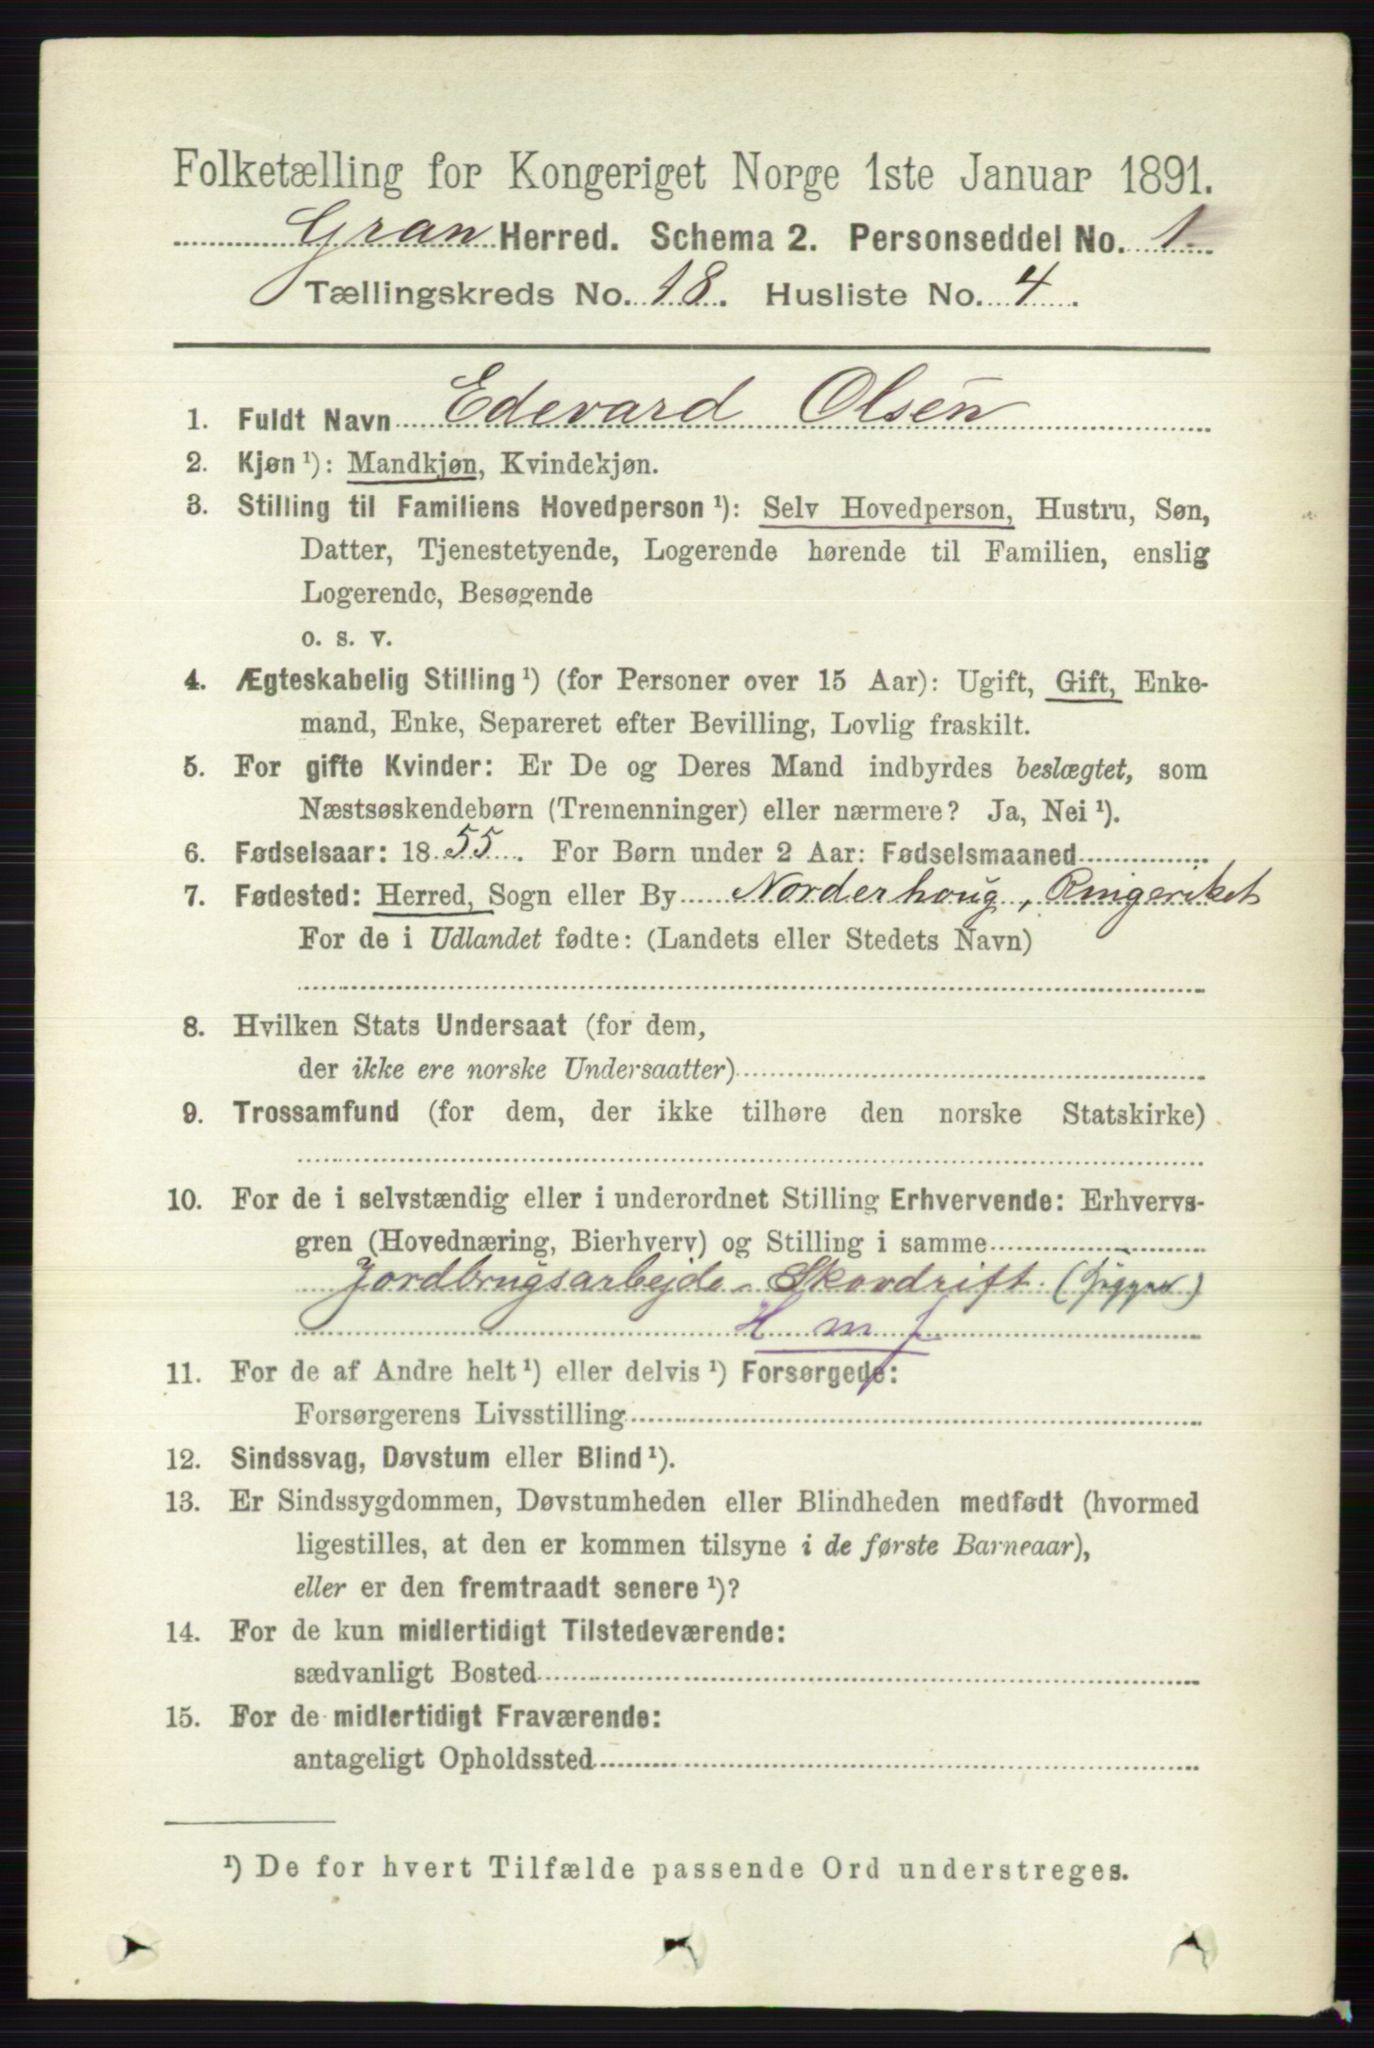 Folketælling for Kongeriget Norge 1ste Januar 1891.
Gran Herred. Schema 2. Personseddel No. 1.
Tællingskreds No. 18. Husliste No. 4.
1. Fuldt Navn Edevard Olsen
2. Kjøn ¹): Mandkjøn, Kvindekjøn.
3. Stilling til Familiens Hovedperson ¹): Selv Hovedperson, Hustru, Søn,
Datter, Tjenestetyende, Logerende hørende til Familien, enslig
Logerende, Besøgende
o. s. v.
4. Ægteskabelig Stilling ¹) (for Personer over 15 Aar): Ugift, Gift, Enke-
mand, Enke, Separeret efter Bevilling, Lovlig fraskilt.
5. For gifte Kvinder: Er De og Deres Mand indbyrdes beslægtet, som
Næstsøskendebørn (Tremenninger) eller nærmere? Ja, Nei ¹).
6. Fødselsaar: 1855. For Børn under 2 Aar: Fødselsmaaned
7. Fødested: Herred, Sogn eller By Norderhoug, Ringeriket
For de i Udlandet fødte: (Landets eller Stedets Navn)
8. Hvilken Stats Undersaat (for dem,
der ikke ere norske Undersaatter)
9. Trossamfund (for dem, der ikke tilhøre den norske Statskirke)
10. For de i selvstændig eller i underordnet Stilling Erhvervende: Erhvervs-
gren (Hovednæring, Bierhverv) og Stilling i samme
Jordbrugsarbejde - Skovdrift.
H m f
11. For de af Andre helt ¹) eller delvis ¹) Forsørgede:
Forsørgerens Livsstilling
12. Sindssvag, Døvstum eller Blind ¹).
13. Er Sindssygdommen, Døvstumheden eller Blindheden medfødt (hvormed
ligestilles, at den er kommen tilsyne i de første Barneaar),
eller er den fremtraadt senere ¹)?
14. For de kun midlertidigt Tilstedeværende:
sædvanligt Bosted
15. For de midlertidigt Fraværende:
antageligt Opholdssted
¹) De for hvert Tilfælde passende Ord understreges.